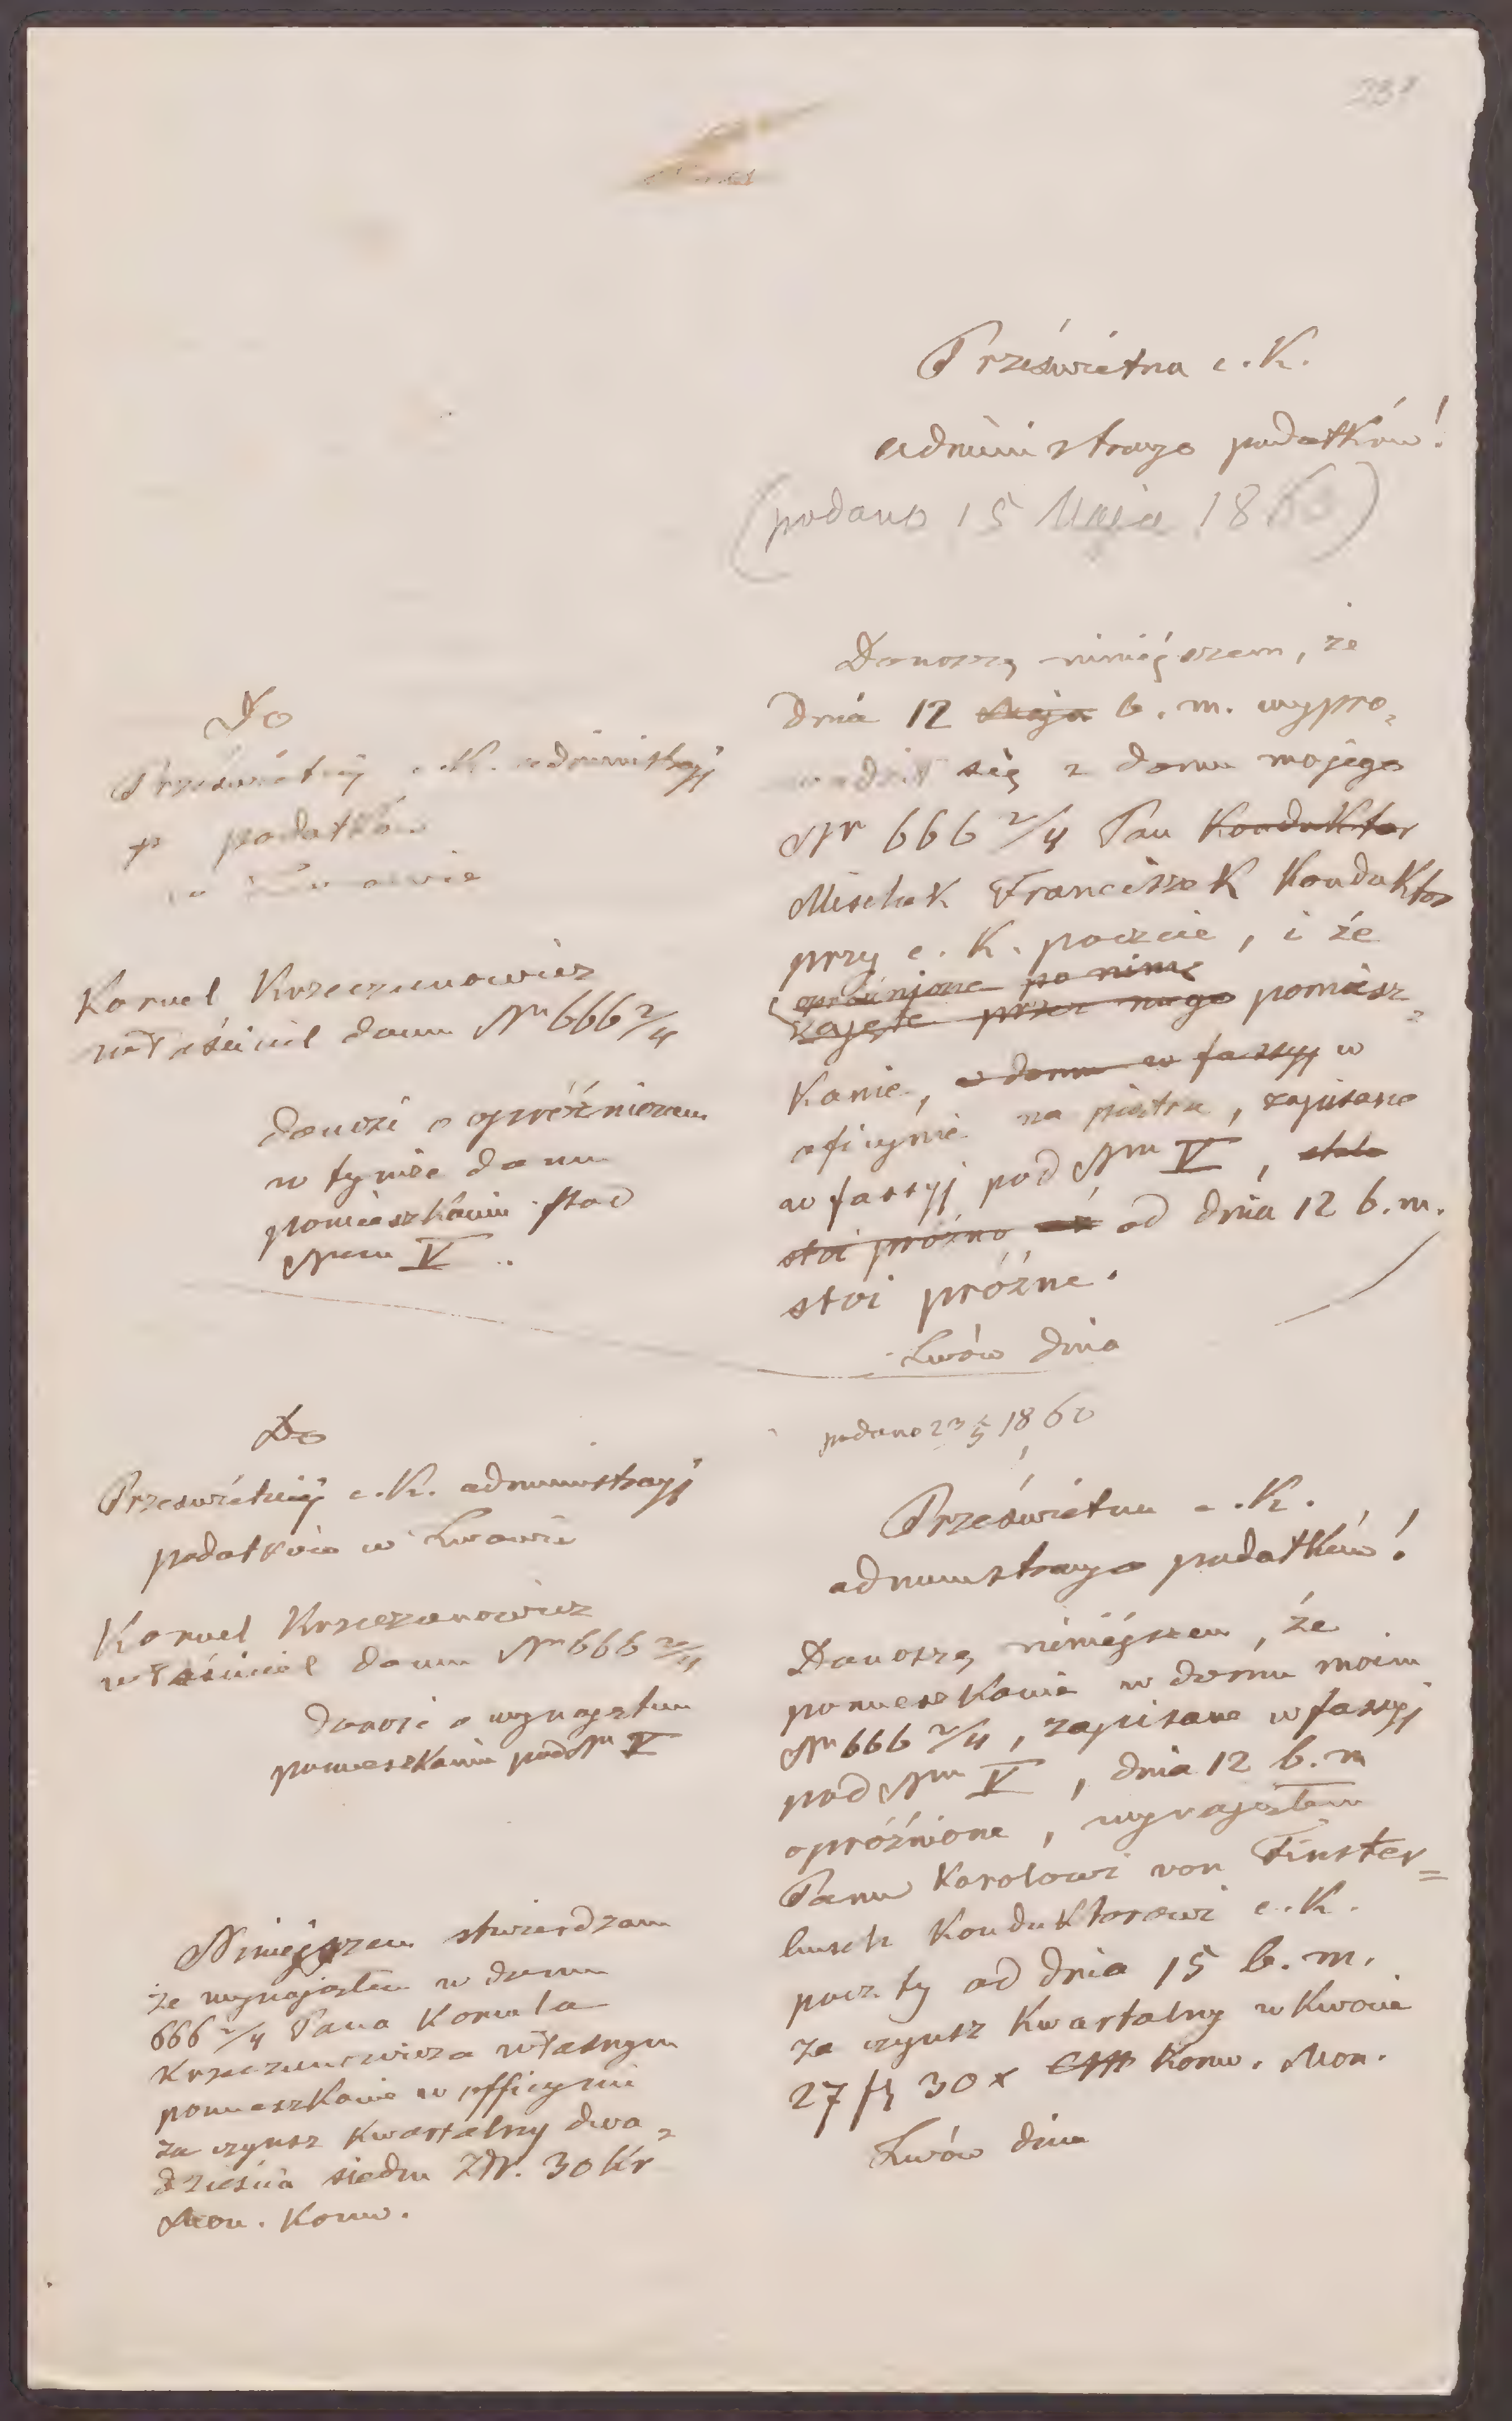 Prześwietna c. K.
administracyo podatków!
(podano 15 Maja 1860)
Donoszę niniejszem, że
dnia 12 Maja b. m. wypro„
wadził się z domu mojego
Nr 666 2/4 Pan Konduktor
Mischek Franciszek Konduktor
przy c. K. poczcie, i że
opróżnione po nime
zajęte przez niego pomiesz„
Kanie, w domu w fassyj w
oficynie na piętrze, zapisane
w fassyj pod Nrm V, stało
stoi próżno od dnia 12 b. m.
stoi próżne.
Lwów dnia
Do
Prześwietnej c. K. administracyj
podatków
w Lwowie
Kornel Krzeczunowicz
właściciel domu Nr 666 2/4
donosi o opróżnieniu
w tymże domu
pomieszkaniu pod
Nrem V.
podano 23/5 1860
Prześwietna c. K.
administracyo podatków!
Donoszę niniejszem, że
pomieszkanie w domu moim
Nr 666 2/4, zapisane w fassyj
pod Nrm V, dnia 12 b. m
opróżnione, wynająłem
Panu Karolowi von Finster=
busch Konduktorowi c. K.
poczty od dnia 15 b. m.
za czynsz Kwartalny w Kwocie
27 fl 30 x Konw. Mon.
Lwów dnia
Do
Prześwietnej c. K. administracyj
podatków w Lwowie
Kornel Krzeczunowicz
właściciel domu Nr 666 2/4
donosi o wynajęciu
pomieszkania pod Nr V
Niniejszem stwierdzam
że wynająłem w domu
666 2/4 Pana Kornela
Krzeczunowicza własnym
pomieszkanie w officynie
za czynsz Kwartalny dwa„
dzieścia siedm Złr. 30 Kr
Mon. Konw.